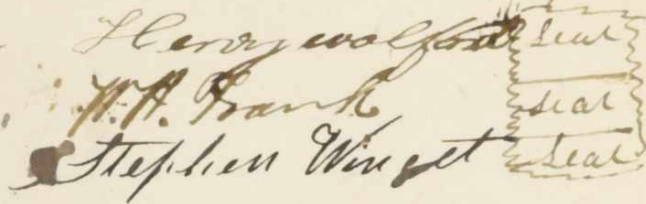 Henry wolford Seal
W.H. Frank Seal
Stephen Winget Seal